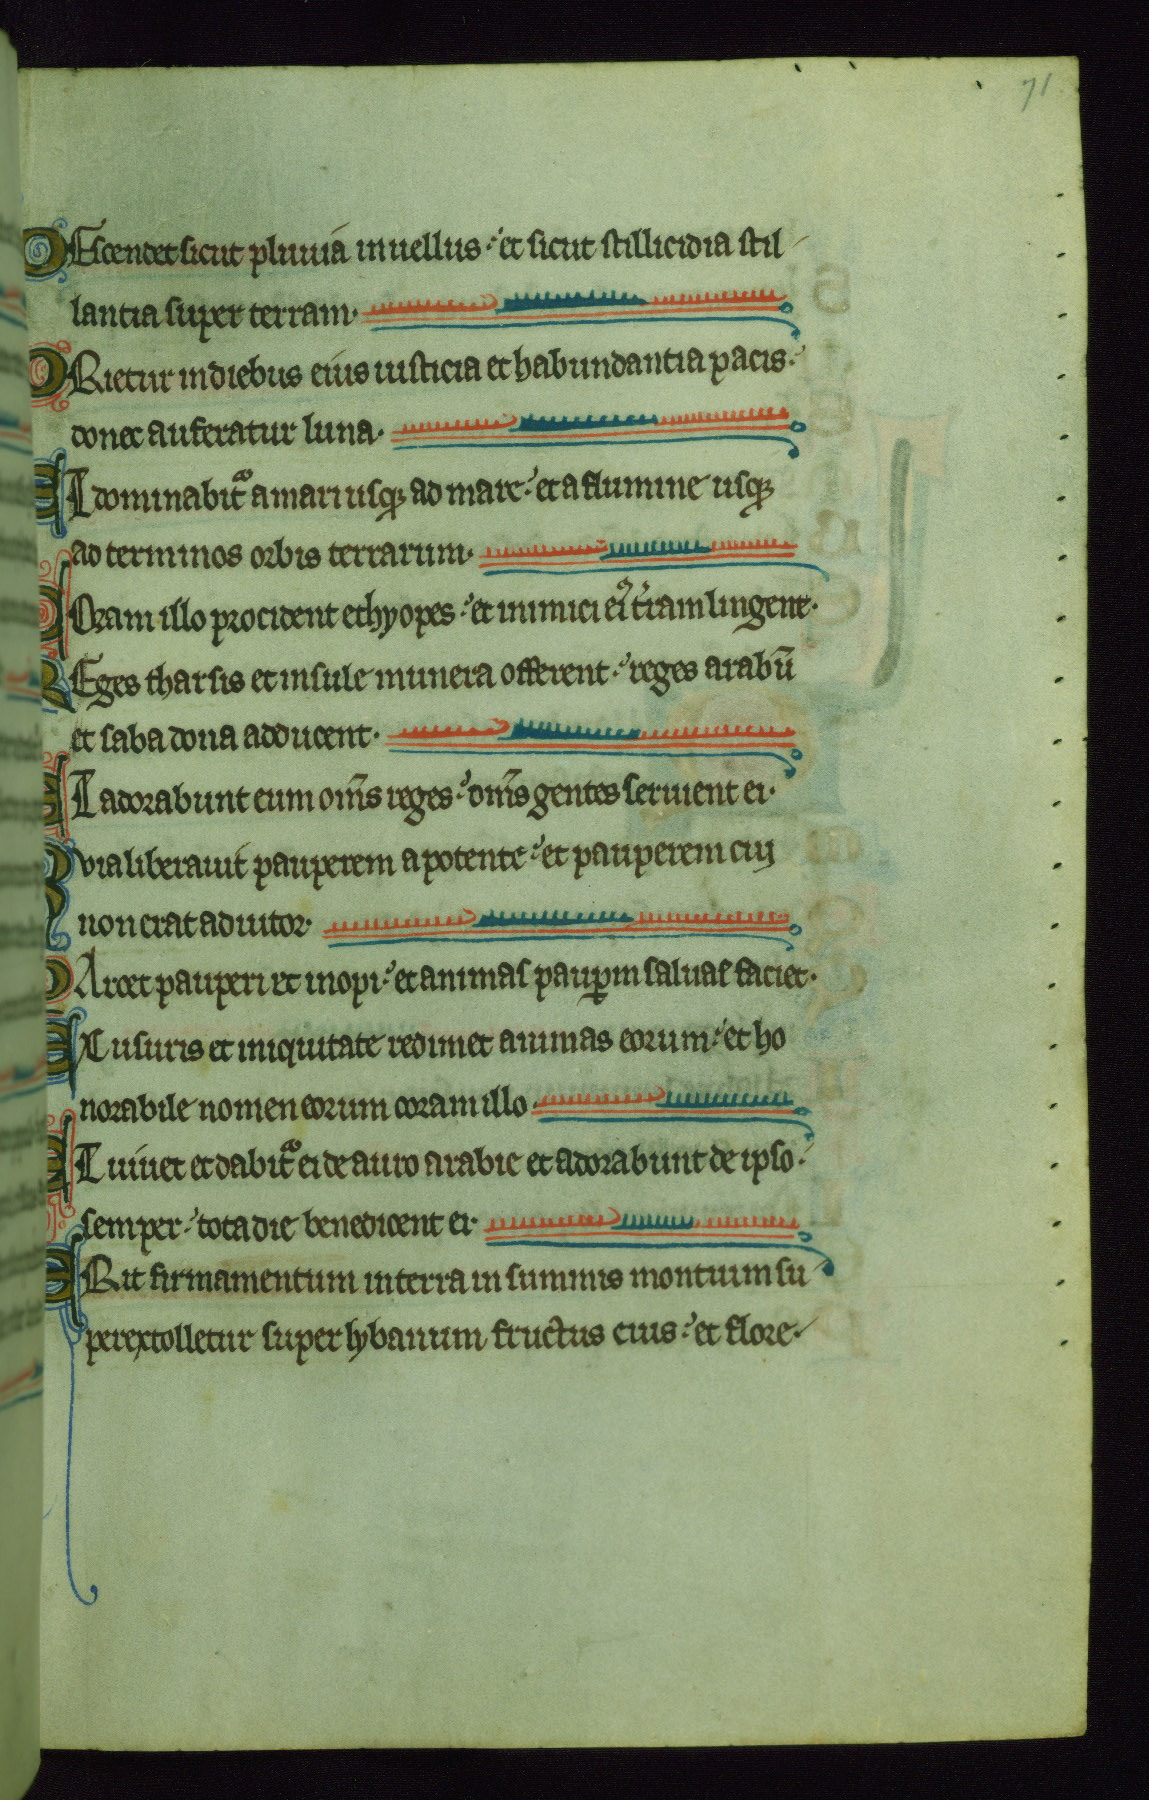 71
DEscendet sicut pluuia in uellus · et sicut stillicidia stil
lantia super terram ·
ORietur in diebus eius iusticia et habundantia pacis ·
donec auferatur luna ·
ET dominabit᷑ a mari usq; ad mare · et a flumine usq;
ad terminos orbis terrarum ·
COram illo procident ethyopes · et inimici ei᷒ t̄ram lingent ·
REges tharsis et insule munera offerent · reges arabū
et saba dona adducent ·
ET adorabunt eum om̄s reges · om̄s gentes seruient ei ·
Quia liberauit pauperem a potente · et pauperem cui
non erat adiutor ·
PArcet pauperi et inopi · et animas pauꝑum saluas faciet ·
EX usuris et iniquitate redimet animas eorum · et ho
norabile nomen eorum coram illo ·
ET uiuet et dabit᷑ ei de auro arabie et adorabunt de ipso ·
semper · tota die benedicent ei ·
ERit firmamentum in terra in summis montium su
perextolletur super lybanum fructus eius · et flore